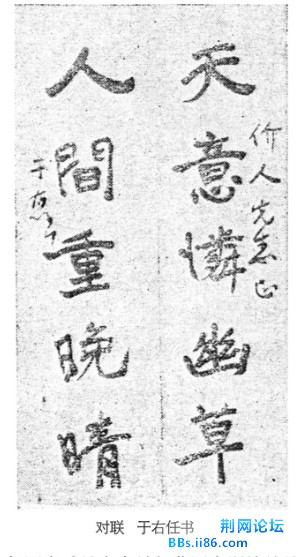 价人先生正
天意憐幽草
人間重晚晴
于右任
对联 于右任书
荆网论坛
BBs.ii86.com